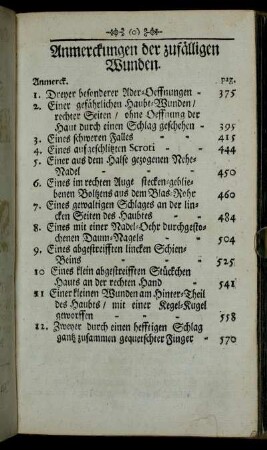 (o)
Anmerckungen der zufälligen
Wunden.
Anmerck. pag.
1. Dreyer besonderer Ader-Oeffnungen - 375
2. Einer gefährlichen Haubt-Wunden /
rechter Seiten / ohne Oeffnung der
Haut durch einen Schlag geschehen - 395
3. Eines schweren Falles - - 415
4. Eines aufgeschlitzten Scroti - - 444
5. Einer aus dem Halse gezogenen Nehe-
Nadel - - - 450
6. Eines im rechten Auge stecken-geblie-
benen Boltzens aus dem Blas-Rohr 460
7. Eines gewaltigen Schlages an der lin-
cken Seiten des Haubtes - - 484
8. Eines mit einer Nadel-Oehr durchgesto-
chenen Daum-Nagels - - 504
9. Eines abgestreifften lincken Schien-
Beins - - - 525
10 Eines klein abgestreifften Stückchen
Hauts an der rechten Hand - 541
11 Einer kleinen Wunden am Hinter-Theil
des Haubtes / mit einer Kegel-Kugel
geworffen - - - 558
12. Zweyer durch einen hefftigen Schlag
gantz zusammen gequetschter Finger - 570